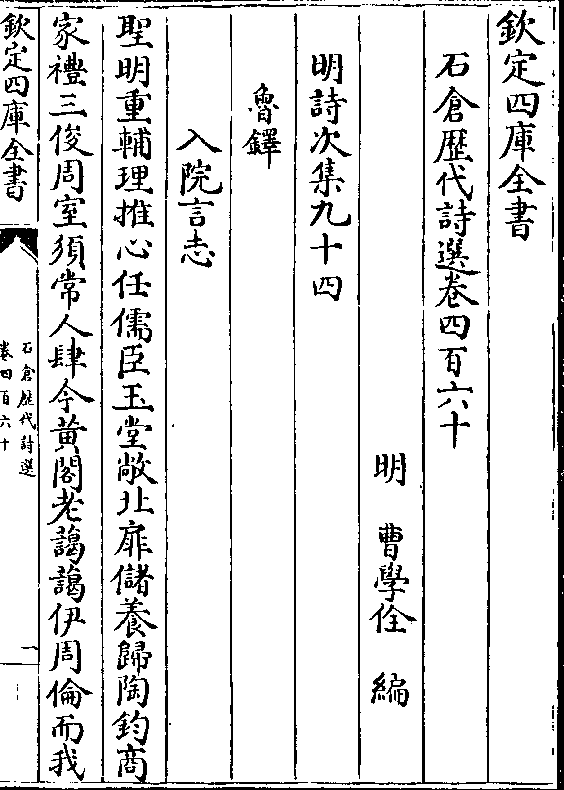 欽定四庫全書
石倉歷代詩選卷四百六十
明 曹學佺 編
明詩次集九十四
魯鐸
入院言志
聖明重輔理推心任儒臣玉堂敞北扉儲養歸陶鈞商
家禮三俊周室須常人肆今黄閣老藹藹伊周倫而我
欽定四庫全書
石倉歷代詩選
卷四百六十
一